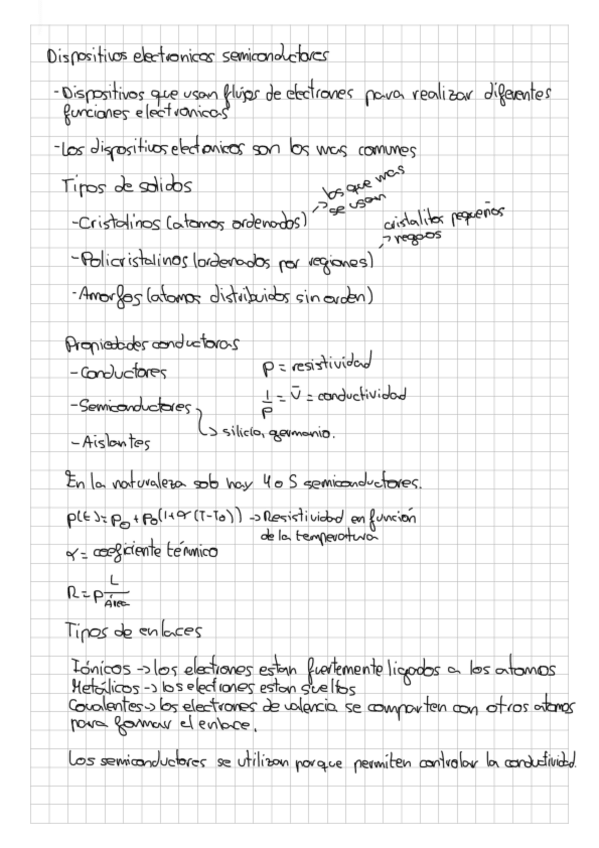 Dispositivos electronicos semiconductores
-Dispositivos que usan flujos de electrones para realizar diferentes
funciones electronicas
-Los dispositivos electonicos son los mas comunes
Tipos de solidos
-Cristalinos (atomos ordenados)
→los que mas
se usan
-Policristalinos (ordenados por regiones)
cristalitos pequeños
→negros
-Amorfos (atomos distribuidos sin orden)
Propiedades conductoras
-Conductores
ρ = resistividad
-Semiconductores
1/ρ = σ = conductividad
↳ silicio, germanio.
-Aislantes
En la naturaleza solo hay 4 o 5 semiconductores.
ρ(t) = ρ₀ + ρ₀(1+α(T-T₀)) → Resistividad en función
de la temperatura
α = coeficiente térmico
R = ρ L/Área
Tipos de enlaces
Iónicos → los electrones estan fuertemente ligados a los atomos
Metálicos → los electrones estan sueltos
Covalentes → los electrones de valencia se comparten con otros atomos
para formar el enlace.
Los semiconductores se utilizan porque permiten controlar la conductividad.